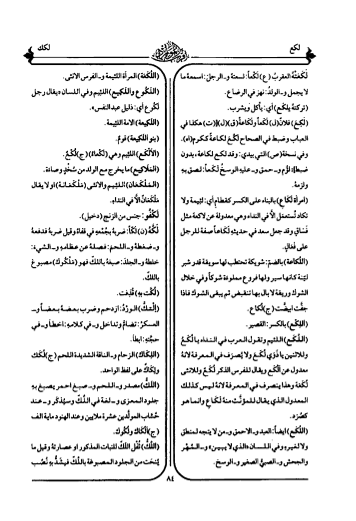 لكع
لكك
لَكَعَتْهُ العقربُ (ع) لَكْعاً: لسعتهُ و_ الرجلَ: اسمعهُ ما
لا يجمل و_ الولدُ: نهز في الرضاع.
(تركتهُ يلكع) أي: يأكل ويشرب.
(لَكِعَ) فلان (ل) لَكَعاً ولَكَاعَةً (ق) (ل) (ت) هكذا في
العباب وضبط في الصحاح لَكُعَ لكاعةً ككرم (ه).
وفي نسخة (ص) التي بيدي: وقد لكع لكاعة، بدون
ضبط: لَؤُمَ و_ حمق و_ عليه الوسخُ لَكَعاً: لصق بهِ
ولزمهُ.
(امرأة لَكَاعِ) بالبناء على الكسر كقطام أي: لئيمة ولا
تكاد تُستعمل إلاَّ في النداء وهي معدولة عن لاكعة مثل
فَسَاقِ وقد جعل سعد في حديثهِ لَكَاعاً صفة للرجل
على فَعَال.
(اللُّكَاعة) بالضم: شويكة تحتطب لها سويقة قدر شبر
ليّنة كانها سير ولها فروع مملوءة شوكاً وفي خلال
الشوك وريقة لا بال بها تنقبض ثم يبقى الشوك فاذا
جفت ابيضت (ج) لُكَاع.
(اللِّكْع) بالكسر: القصير.
(اللُّكَع) اللئيم وتقول العرب في النداء يا لُكَعُ
وللاثنين يا ذَوَيْ لُكَعَ ولا يُصرَف في المعرفة لانهُ
معدول عن ألكع ويقال للفرس الذكر لُكَع وللانثى
لُكَعة وهذا ينصرف في المعرفة لانهُ ليس كذلك
المعدول الذي يقال للمؤنث منهُ لَكَاعِ وانما هو
كصُرَد.
(اللُّكَع) ايضاً: العبد و_ الاحمق و_ من لا يتجه لمنطق
ولا لغيرهِ وفي اللسان «الذي لا يبين» و_ المُهْر
والجحش و_ الصبيّ الصغير و_ الوسخ.
(اللُّكَعَة) المرأة اللئيمة و_ الفرس الانثى.
(اللَّكُوع واللَّكِيع) اللئيم وفي اللسان «يقال رجل
لَكُوع أي: ذليل عبد النفس».
(اللَّكِيعة) الأمة اللئيمة.
(بنو اللَّكِيعة) قومٌ.
(الأَلْكَع) اللئيم وهي (لَكْعَاءُ) (ج) لُكْع.
(المَلاَكيع) ما يخرج مع الولد من سُخْدٍ وصاءة.
(المَلْكَعَان) اللئيم والانثى (مَلْكَعَانة) او لا يقال
مَلْكَعَانُ إلاَّ في النداء.
لَكْفُو: جنس من الزنج (دخيل).
لَكَّهُ (ن) لَكّاً: ضربهُ بجُمْعهِ في قفاهُ وقيل ضربهُ فدفعهُ
و_ ضغطهُ و_ اللحمَ: فصلهُ عن عظامهِ و_ الشيءَ:
خلطهُ و_ الجلدَ: صبغهُ باللَّك فهو (مَلْكُوك) مصبوغ
باللَّك.
(لُكَّت بهِ) قُذِفت.
(إِلْتَكَّ) الوِرْدُ: ازدحم وضرب بعضهُ بعضاً و_
العسكرُ: تضامَّ وتداخل و_ في كلامهِ: اخطأ و_ في
حجّتهِ: ابطأ.
(اللِّكَاك) الزحام و_ الناقة الشديدة اللحم (ج) لُكُك
ولِكَاك على لفظ الواحد.
(اللَّكّ) مصدر و_ اللحم و_ صبغ احمر يصبغ بهِ
جلود المعزى و_ لغة في اللُّك وسيُذكر و_ عند
حُسّاب المولّدين عشرة ملايين وعند الهنود ماية الف
(ج) أَلْكَاك ولُكُوك.
(اللُّكّ) ثُفْل اللَّك لنبات المذكور او عصارتهُ وقيل ما
يُنحت من الجلود المصبوغة باللَّك فيُشَدُّ بهِ نُصُب
٨٤